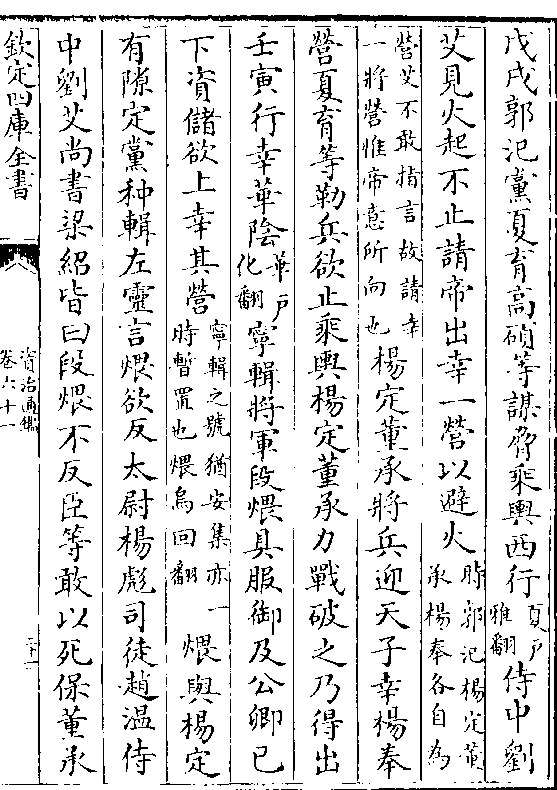 戊戌郭汜黨夏育高碩等謀脅乘輿西行夏戶雅翻侍中劉
艾見火起不止請帝出幸一營以避火時郭汜楊定董承楊奉各自為
營艾不敢指言故請幸一將營惟帝意所向也楊定董承將兵迎天子幸楊奉
營夏育等勒兵欲止乘輿楊定董承力戰破之乃得出
壬寅行幸華陰華戶化翻寧輯將軍段煨具服御及公卿已
下資儲欲上幸其營寧輯之號猶安集亦一時暫置也煨烏回翻煨與楊定
有隙定黨种輯左靈言煨欲反太尉楊彪司徒趙溫侍
中劉艾尚書梁紹皆曰段煨不反臣等敢以死保董承
欽定四庫全書
資治通鑑
卷六十一